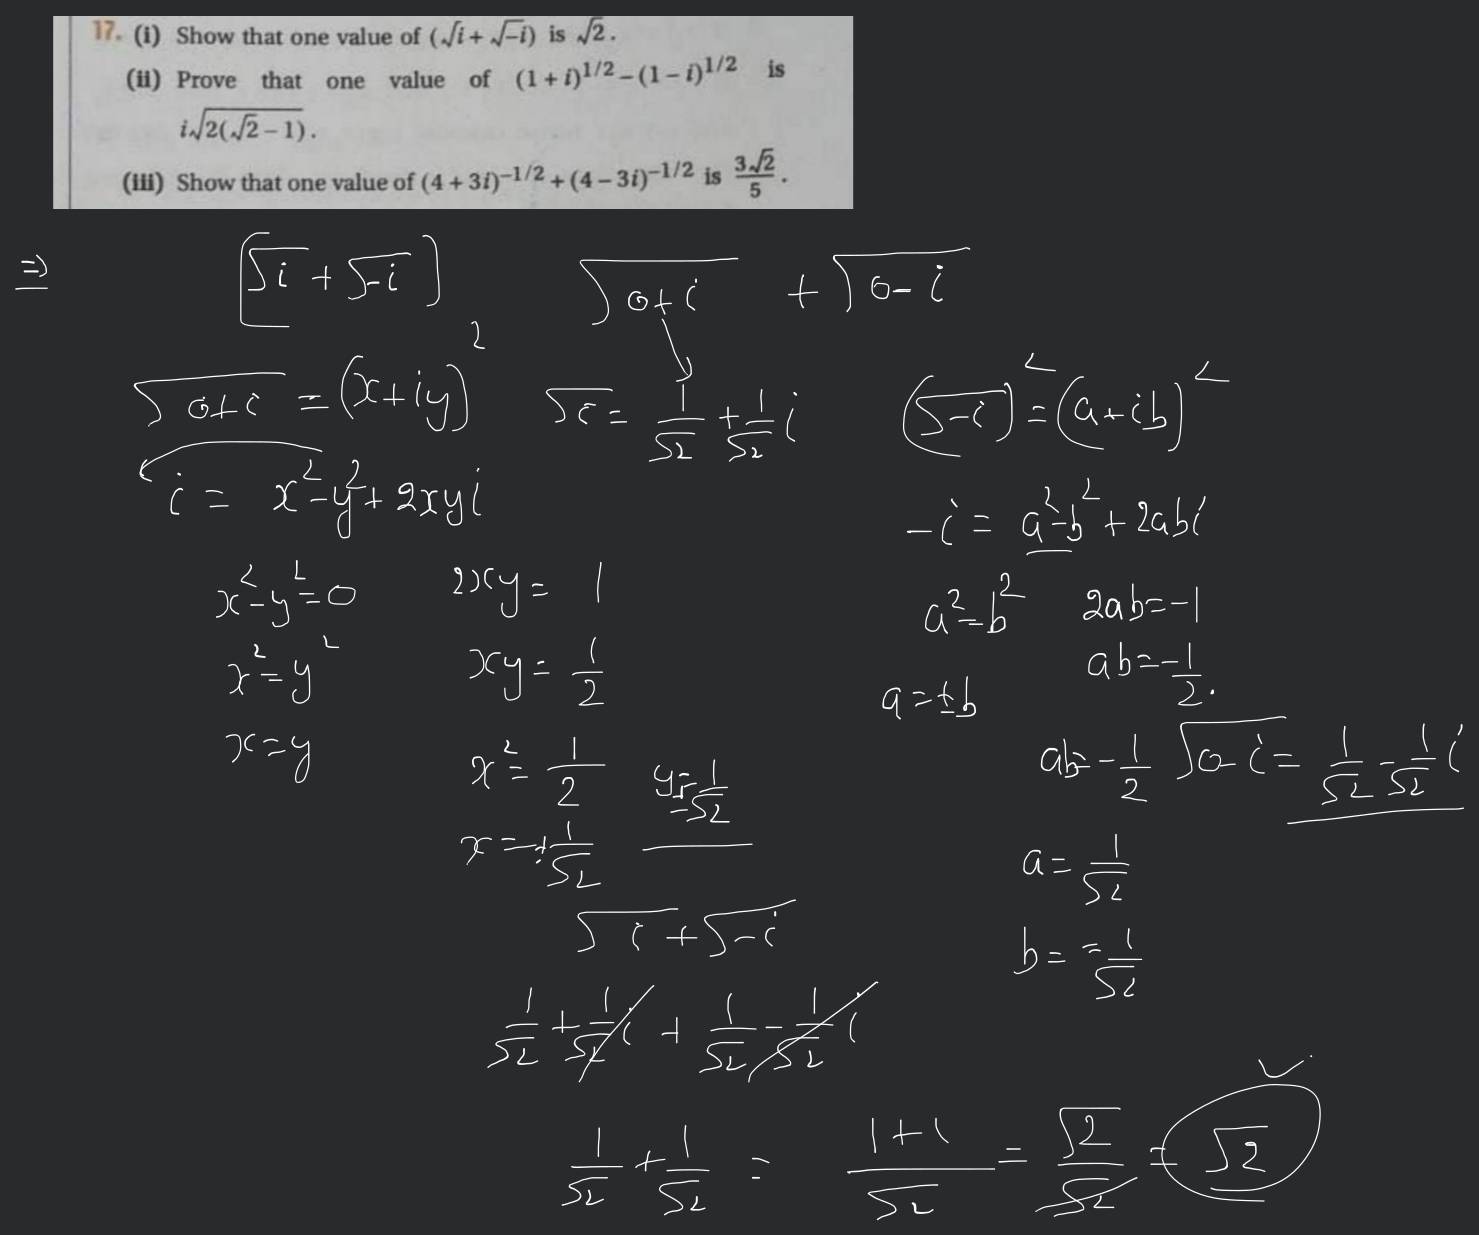 17. (i) Show that one value of (√i + √-i) is √2.
(ii) Prove that one value of (1 + i)^1/2 - (1 - i)^1/2 is
i√2(√2 - 1).
(iii) Show that one value of (4 + 3i)^-1/2 + (4 - 3i)^-1/2 is 3√2/5.
⇒ [√i + √-i] √0+i + √0-i
√0+i = (x+iy)² √i = 1/√2 + 1/√2 i (√-i)² = (a+ib)²
i = x²-y²+2xyi -i = a²-b²+2abi
x²-y²=0 2xy = 1 a²=b² 2ab=-1
x²=y² xy = 1/2 a=±b ab=-1/2.
x=y x² = 1/2 y=±1/√2 ab=-1/2 √0-i = 1/√2 - 1/√2 i
x=±1/√2 a=1/√2
√i+√-i b=-1/√2
1/√2 + 1/√2 i + 1/√2 - 1/√2 i
1/√2 + 1/√2 = 1+1/√2 = √2/√2 = √2